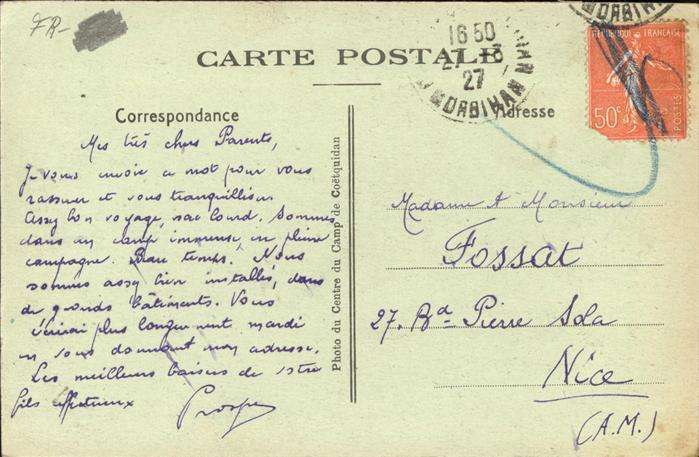 FR-
CARTE POSTALE
16 50
27 - 3
27
MORBIHAN
MORBIHAN
REPUBLIQUE FRANÇAISE
50c
POSTES
Correspondance
Mes très chers Parents,
Je vous envoie ce mot pour vous
rassurer et vous tranquilliser.
Assez bon voyage, sac lourd. Sommes
dans un camp immense, en pleine
campagne. Beau temps. Nous
sommes assez bien installés, dans
de grands bâtiments. Vous
écrirai plus longuement mardi
en vous donnant mon adresse.
Les meilleurs baisers de votre
fils affectueux Prosper
Photo du Centre du Camp de Coëtquidan
Adresse
Madame & Monsieur
Fossat
27. Bd Pierre Sola
Nice
(A.M.)